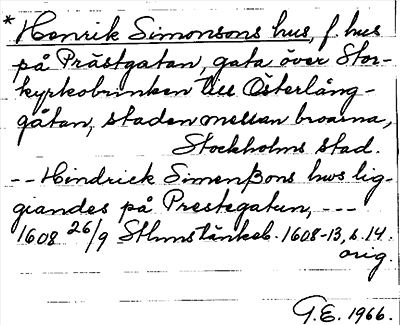 * Henrik Simonsons hus, f. hus
på Prästgatan, gata över Stor-
kyrkobrinken till Österlång-
gatan, staden mellan broarna,
Stockholms stad.
-- Hindrick Simenßons hws lig-
giandes på Prestegatun, ---
1608 26/9 Sthmstänkeb. 1608-13, s. 14.
orig.
G.E. 1966.